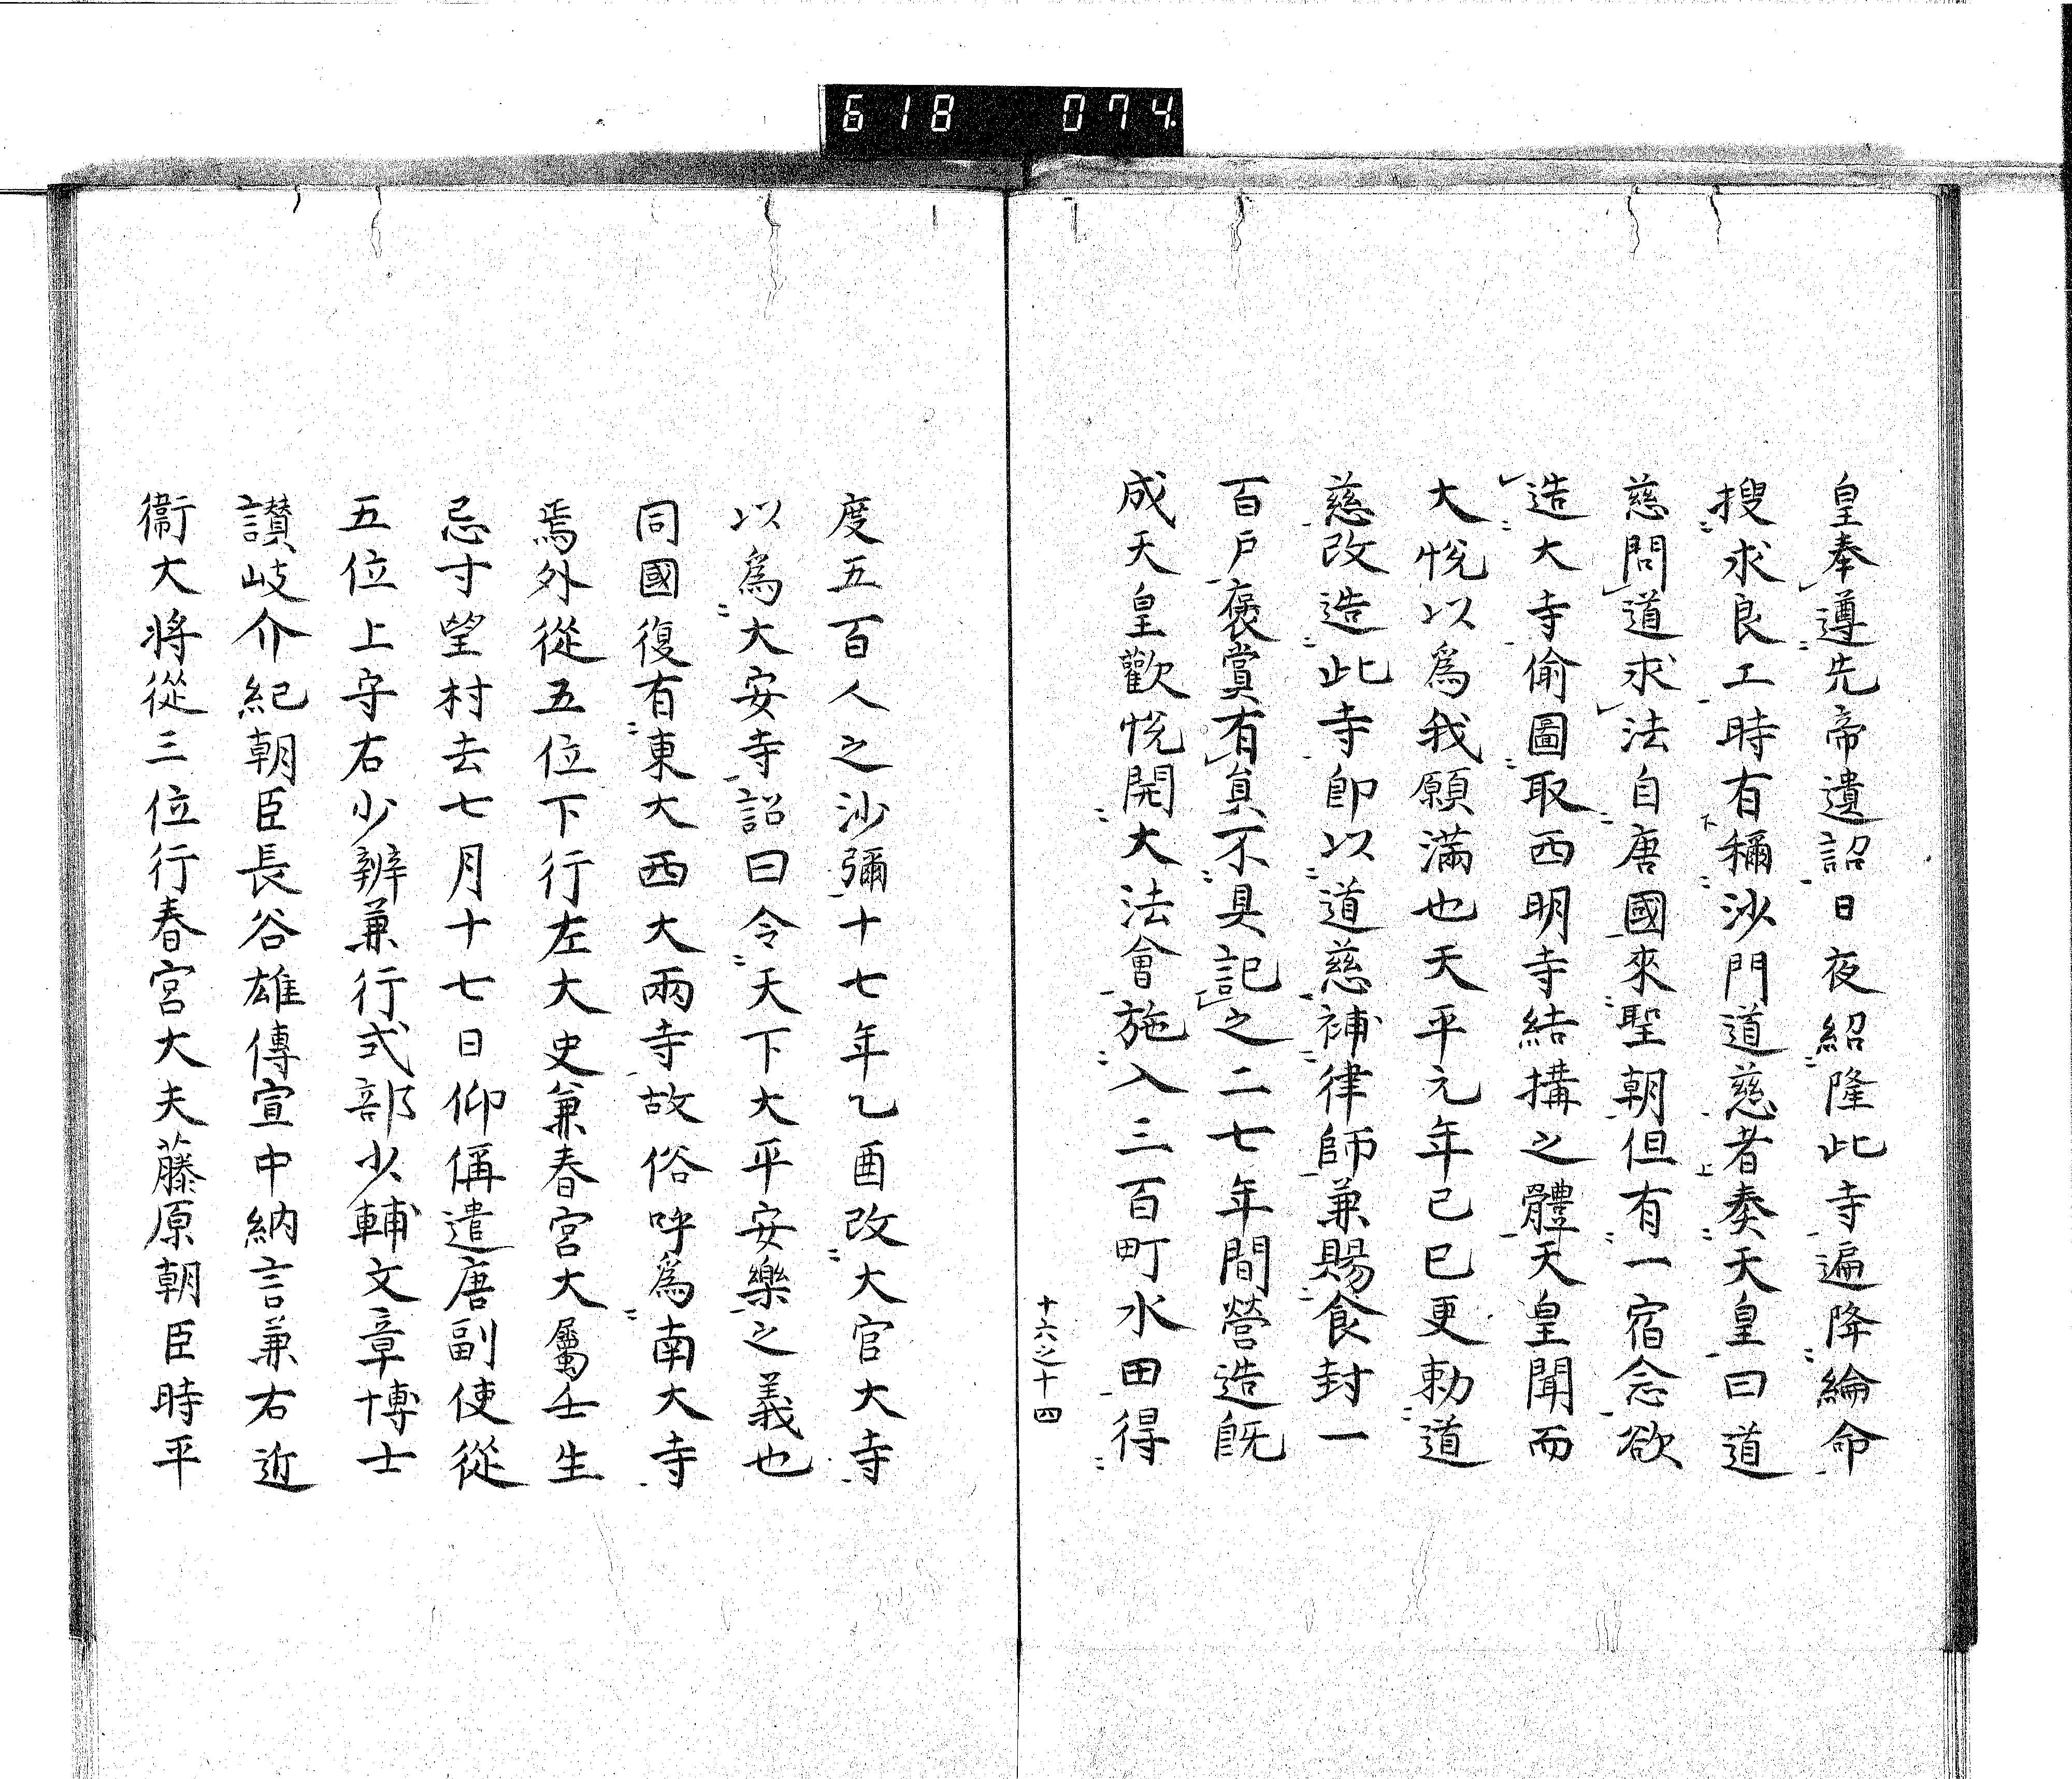 618 074
皇奉遵先帝遺詔日夜紹隆此寺遍降綸命
搜求良工時有稱沙門道慈者奏天皇曰道
慈問道求法自唐國來聖朝但有一宿念欲
造大寺偷圖取西明寺結搆之體天皇聞而
大悅以爲我願滿也天平元年己巳更勅道
慈改造此寺卽以道慈補律師兼賜食封一
百戶褒賞有員不具記之二七年間營造旣
成天皇歡悅開大法會施入三百町水田得
十六之十四
度五百人之沙彌十七年乙酉改大官大寺
以爲大安寺詔曰令天下大平安樂之義也
同國復有東大西大兩寺故俗呼爲南大寺
焉外從五位下行左大史兼春宮大屬壬生
忌寸望村去七月十七日仰偁遣唐副使從
五位上守右少辨兼行式部少輔文章博士
讃岐介紀朝臣長谷雄傳宣中納言兼右近
衞大將從三位行春宮大夫藤原朝臣時平